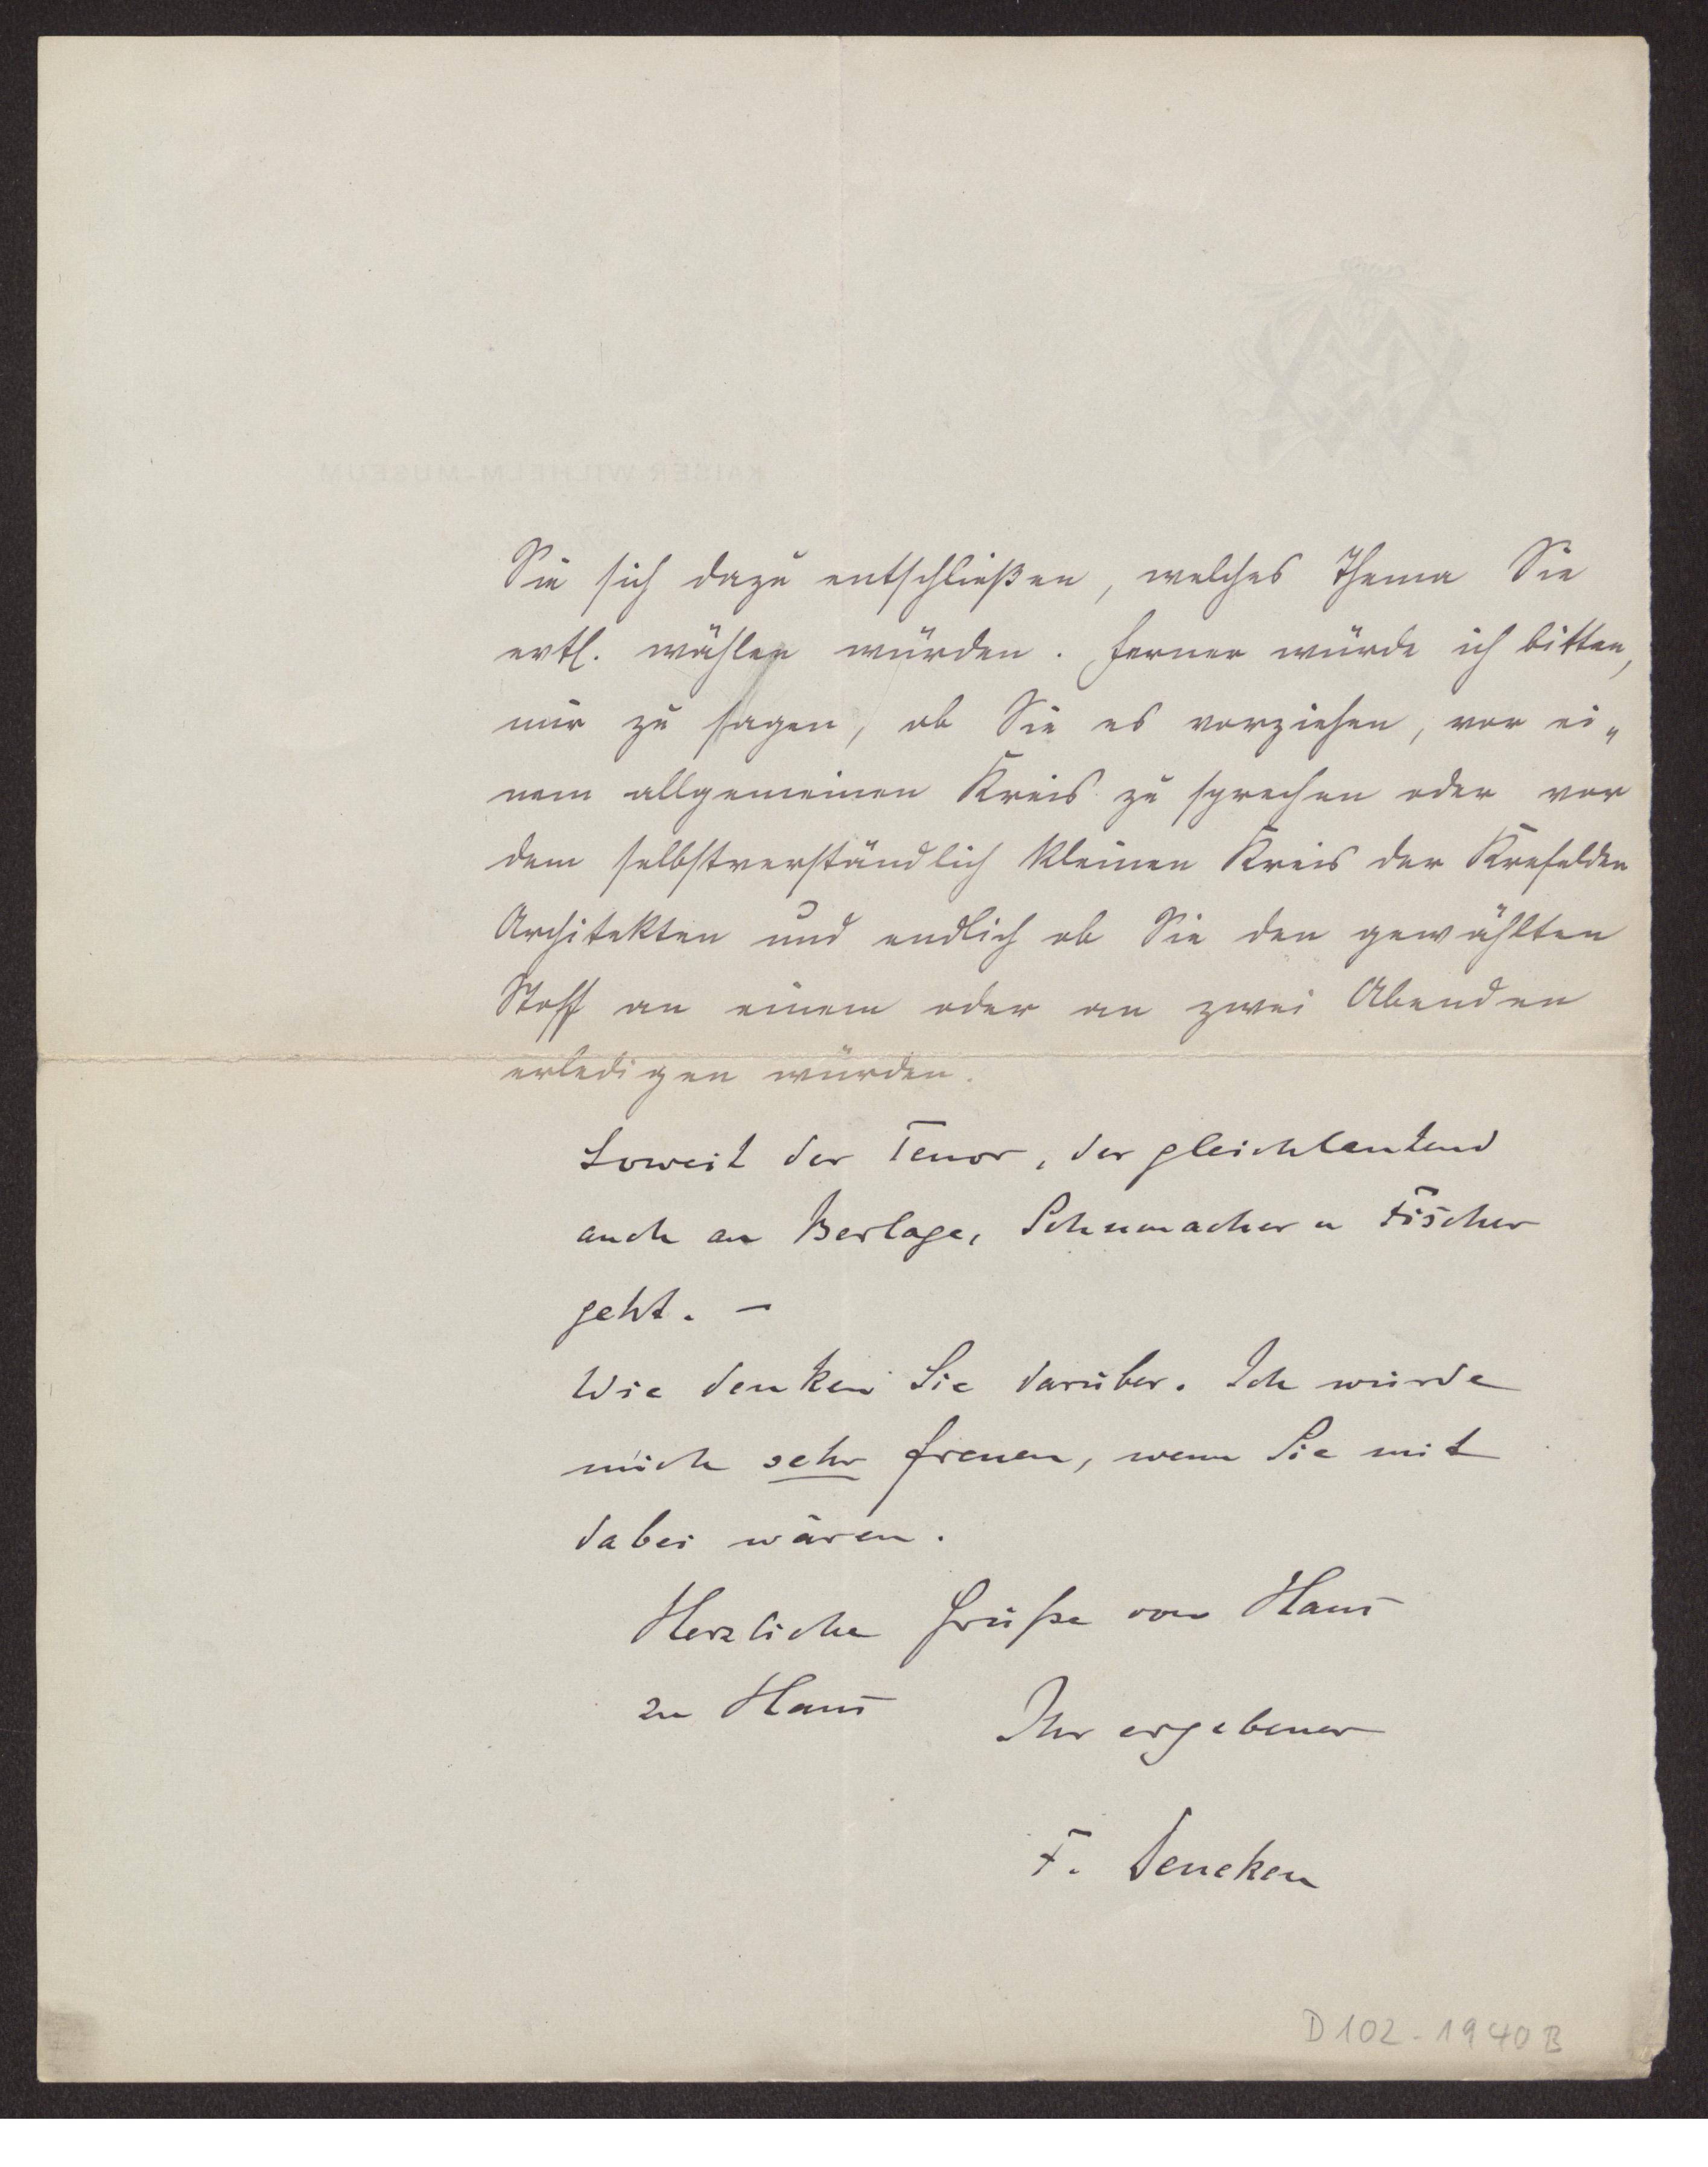 Sie sich dazu entschließen, welches Thema Sie
evtl. wählen würden. Ferner würde ich bitten,
mir zu sagen, ob Sie es vorziehen, vor ei„
nem allgemeinen Kreis zu sprechen oder vor
dem selbstverständlich kleinen Kreis der Krefelder
Architekten und endlich ob Sie den gewählten
Stoff an einem oder an zwei Abenden
erledigen würden.
Soweit der Tenor, der gleichlautend
auch an Berlage, Schumacher u Fischer
geht. –
Wie denken Sie darüber. Ich würde
mich sehr freuen, wenn Sie mit
dabei wären.
Herzliche Grüße von Haus
zu Haus
Ihr ergebener
F. Deneken
D 102 - 1940 B